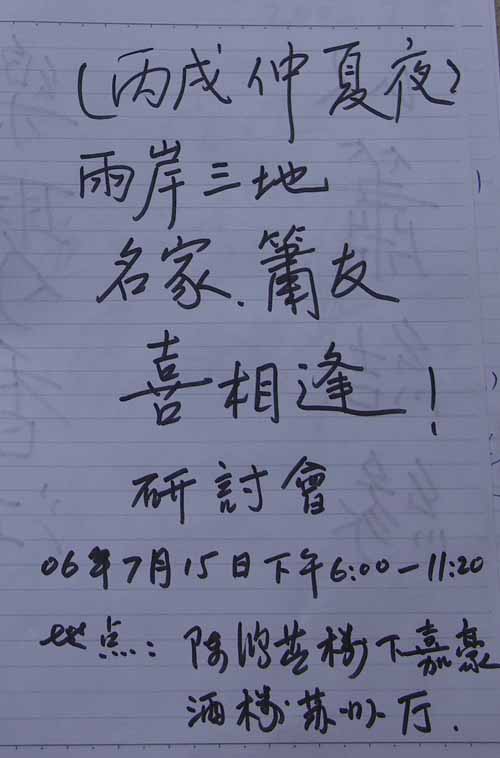 (丙戌仲夏夜)
兩岸三地
名家.簫友
喜相逢!
研討會
06年7月15日下午6:00-11:20
地点: 陈鸿芸楼下嘉豪
酒楼苏州厅.